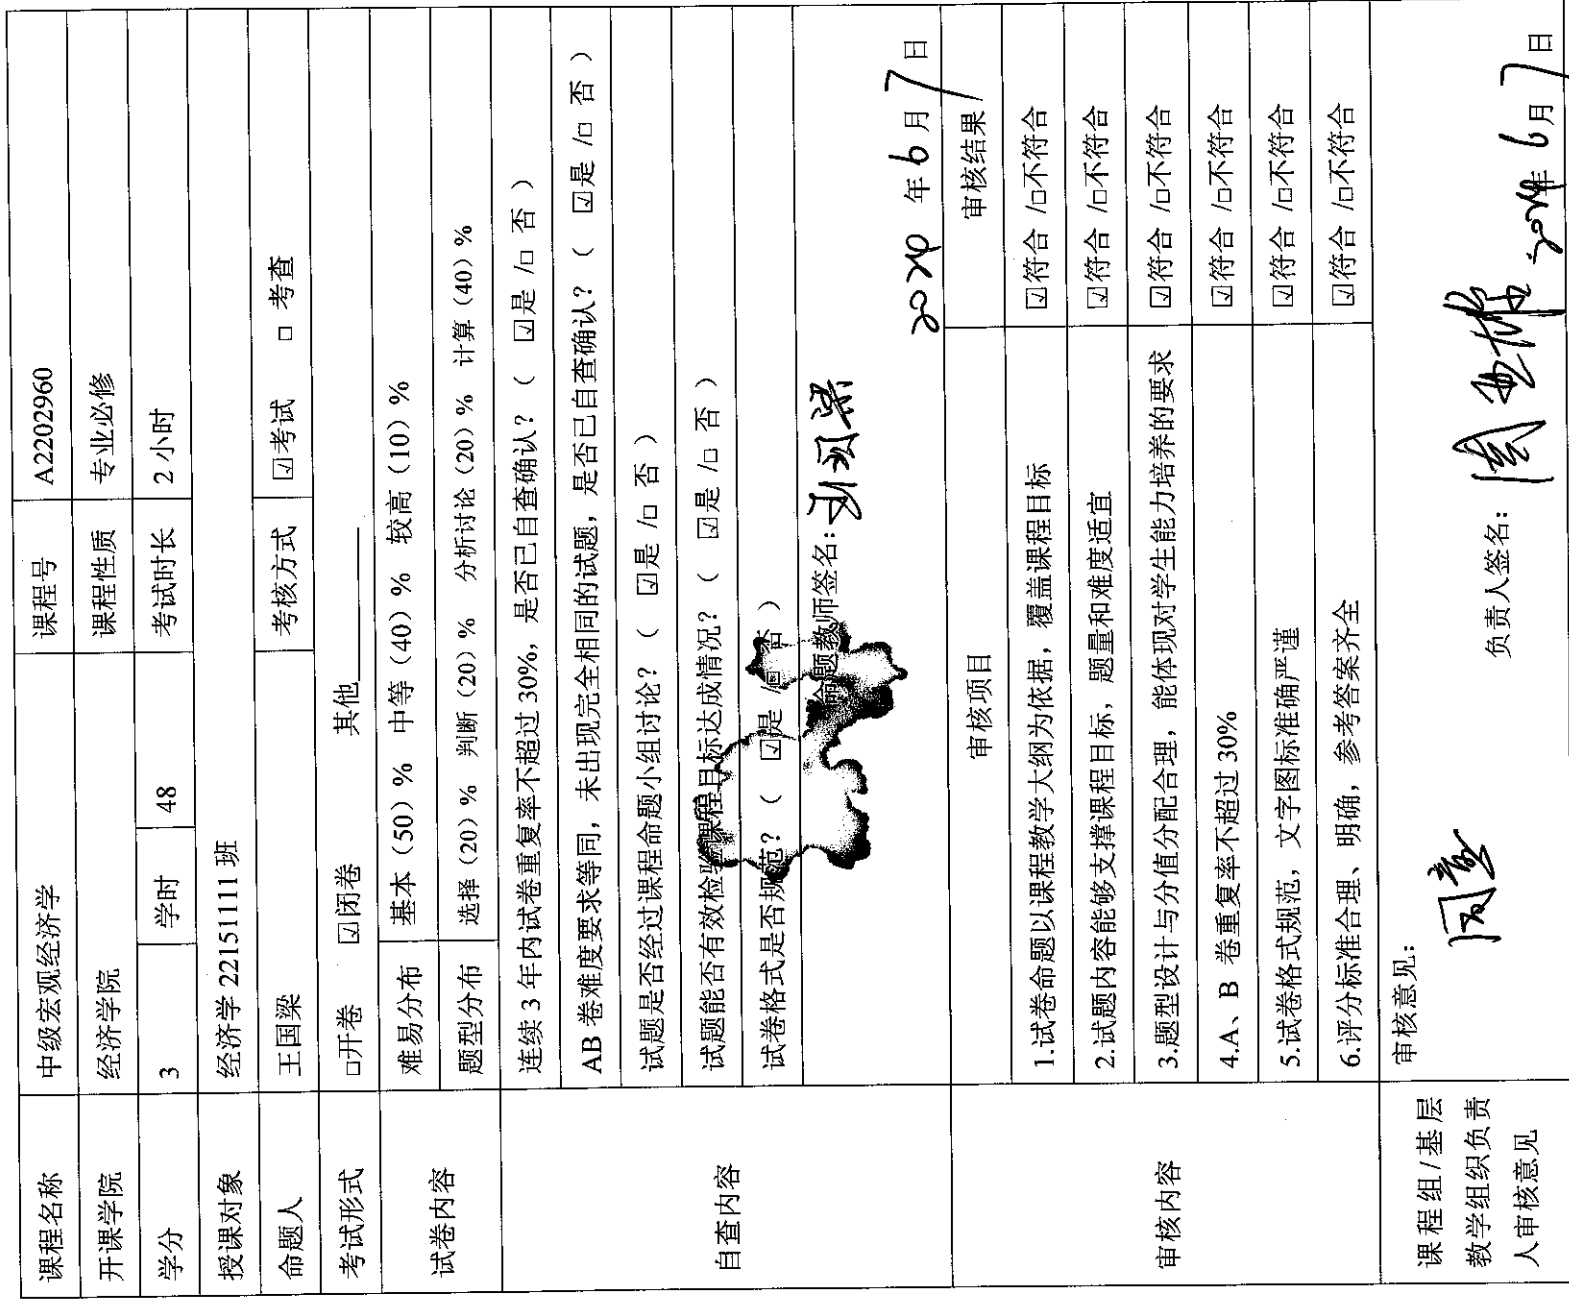 课程名称 中级宏观经济学 课程号 A2202960
开课学院 经济学院 课程性质 专业必修
学分 3 学时 48 考试时长 2 小时
授课对象 经济学 22151111 班
命题人 王国梁 考核方式 ☑考试 □ 考查
考试形式 □开卷 ☑闭卷 其他______
试卷内容
难易分布 基本（50）% 中等（40）% 较高（10）%
题型分布 选择（20）% 判断（20）% 分析讨论（20）% 计算（40）%
自查内容
连续 3 年内试卷重复率不超过 30%，是否已自查确认？（ ☑是 /□ 否 ）
AB 卷难度要求等同，未出现完全相同的试题，是否已自查确认？（ ☑是 /□ 否 ）
试题是否经过课程命题小组讨论？（ ☑是 /□ 否 ）
试题能否有效检验课程目标达成情况？（ ☑是 /□ 否 ）
试卷格式是否规范？（ ☑是 /□ 否 ）
命题教师签名：
2024 年 6 月 7 日
审核内容
审核项目 审核结果
1.试卷命题以课程教学大纲为依据，覆盖课程目标 ☑符合 /□不符合
2.试题内容能够支撑课程目标，题量和难度适宜 ☑符合 /□不符合
3.题型设计与分值分配合理，能体现对学生能力培养的要求 ☑符合 /□不符合
4.A、B 卷重复率不超过 30% ☑符合 /□不符合
5.试卷格式规范，文字图标准确严谨 ☑符合 /□不符合
6.评分标准合理、明确，参考答案齐全 ☑符合 /□不符合
课程组/基层
教学组织负责
人审核意见
审核意见：
同意
负责人签名：
2024年 6 月 7 日